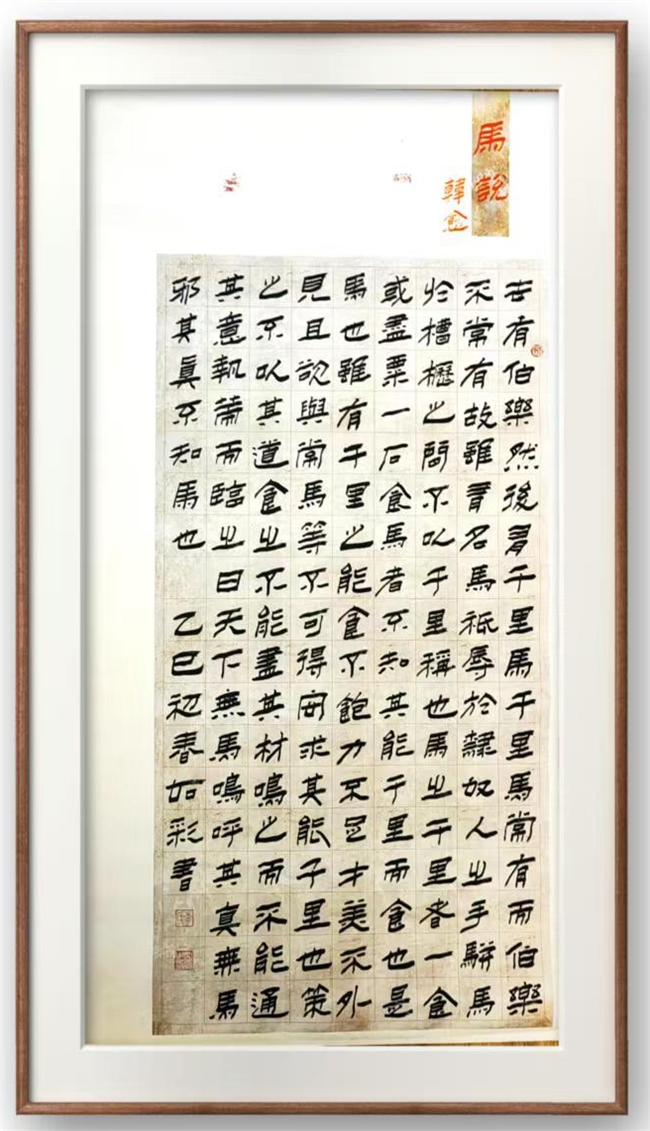 馬說
韓愈
世有伯樂然後有千里馬千里馬常有而伯樂
不常有故雖有名馬祗辱於隸奴人之手駢馬
於槽櫪之間不以千里稱也馬之千里者一食
或盡粟一石食馬者不知其能千里而食也是
馬也雖有千里之能食不飽力不足才美不外
見且欲與常馬等不可得安求其能千里也策
之不以其道食之不能盡其材鳴之而不能通
其意執策而臨之曰天下無馬嗚呼其真無馬
邪其真不知馬也 乙巳初春如彩書